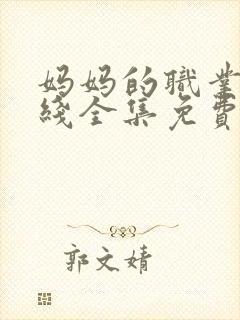 妈妈的職業
綫全集免費
郭文婧